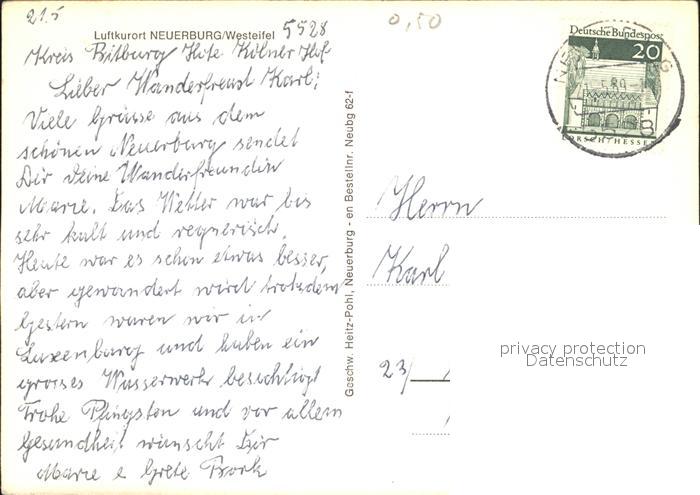 21.5
Luftkurort NEUERBURG/Westeifel 5528
Kreis Bitburg Hote Kölner Hof
Lieber Wanderfreund Karl!
Viele Grüsse aus dem
schönen Neuerburg sendet
Dir Deine Wanderfreundin
Marie. Das Wetter war bis
sehr kalt und regnerisch.
Heute war es schon etwas besser,
aber gewandert wird trotzdem
Gestern waren wir in
Luxenburg und haben ein
grosses Wasserwerk besichtigt
Frohe Pfingsten und vor allem
Gesundheit wünscht Dir
Marie e Grete
Geschw. Heitz-Pohl, Neuerburg - en Bestellnr. Neubg 62-f
0,50
Deutsche Bundespost
20
LORSCH/HESSEN
Herrn
Karl
23/
privacy protection
Datenschutz